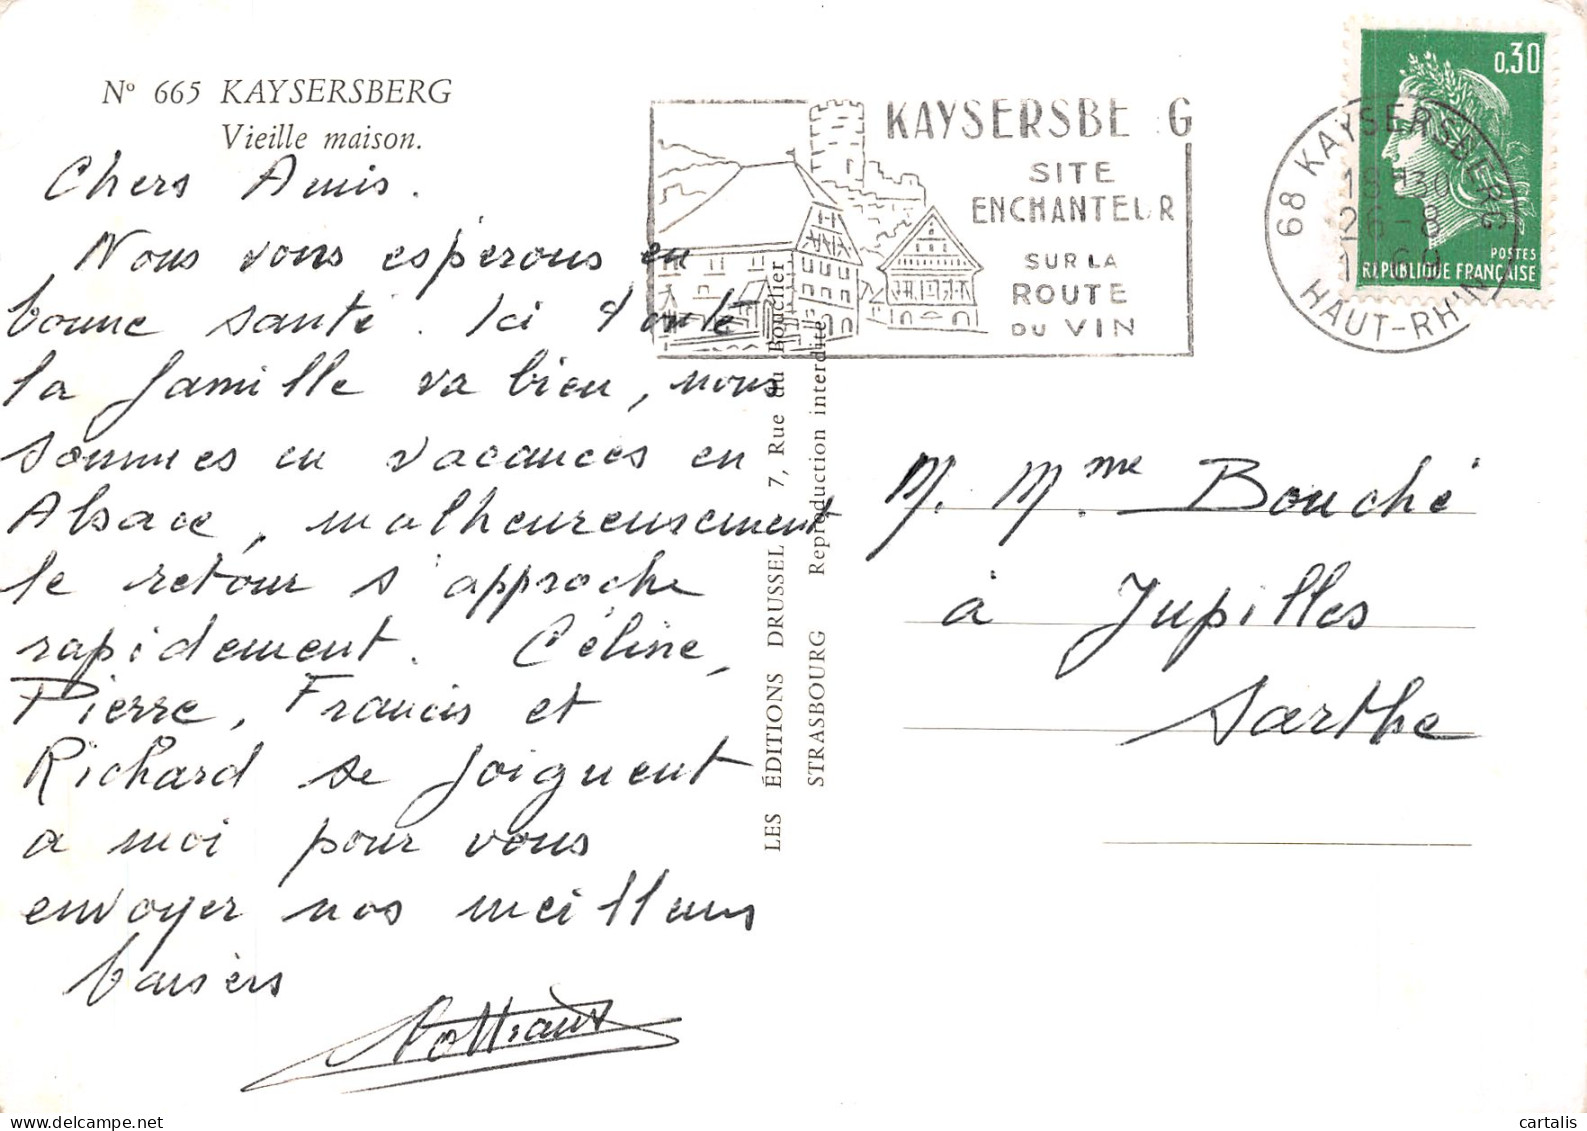 N° 665 KAYSERSBERG
Vieille maison.
Chers Amis.
Nous vous espérons en
bonne santé. Ici toute
la famille va bien, nous
sommes en vacances en
Alsace, malheureusement
le retour s'approche
rapidement. Céline,
Pierre, Francis et
Richard se joignent
a moi pour vous
envoyer nos meilleurs
baisers
LES ÉDITIONS DRUSSEL 7, Rue du Bouclier
STRASBOURG Reproduction interdite
KAYSERSBE G
SITE
ENCHANTEUR
SUR LA
ROUTE
DU VIN
68 KAYSERSBERG
26-8
HAUT-RHIN
0,30
POSTES
REPUBLIQUE FRANÇAISE
M. Mme Bouché
à Jupilles
Sarthe
cartalis